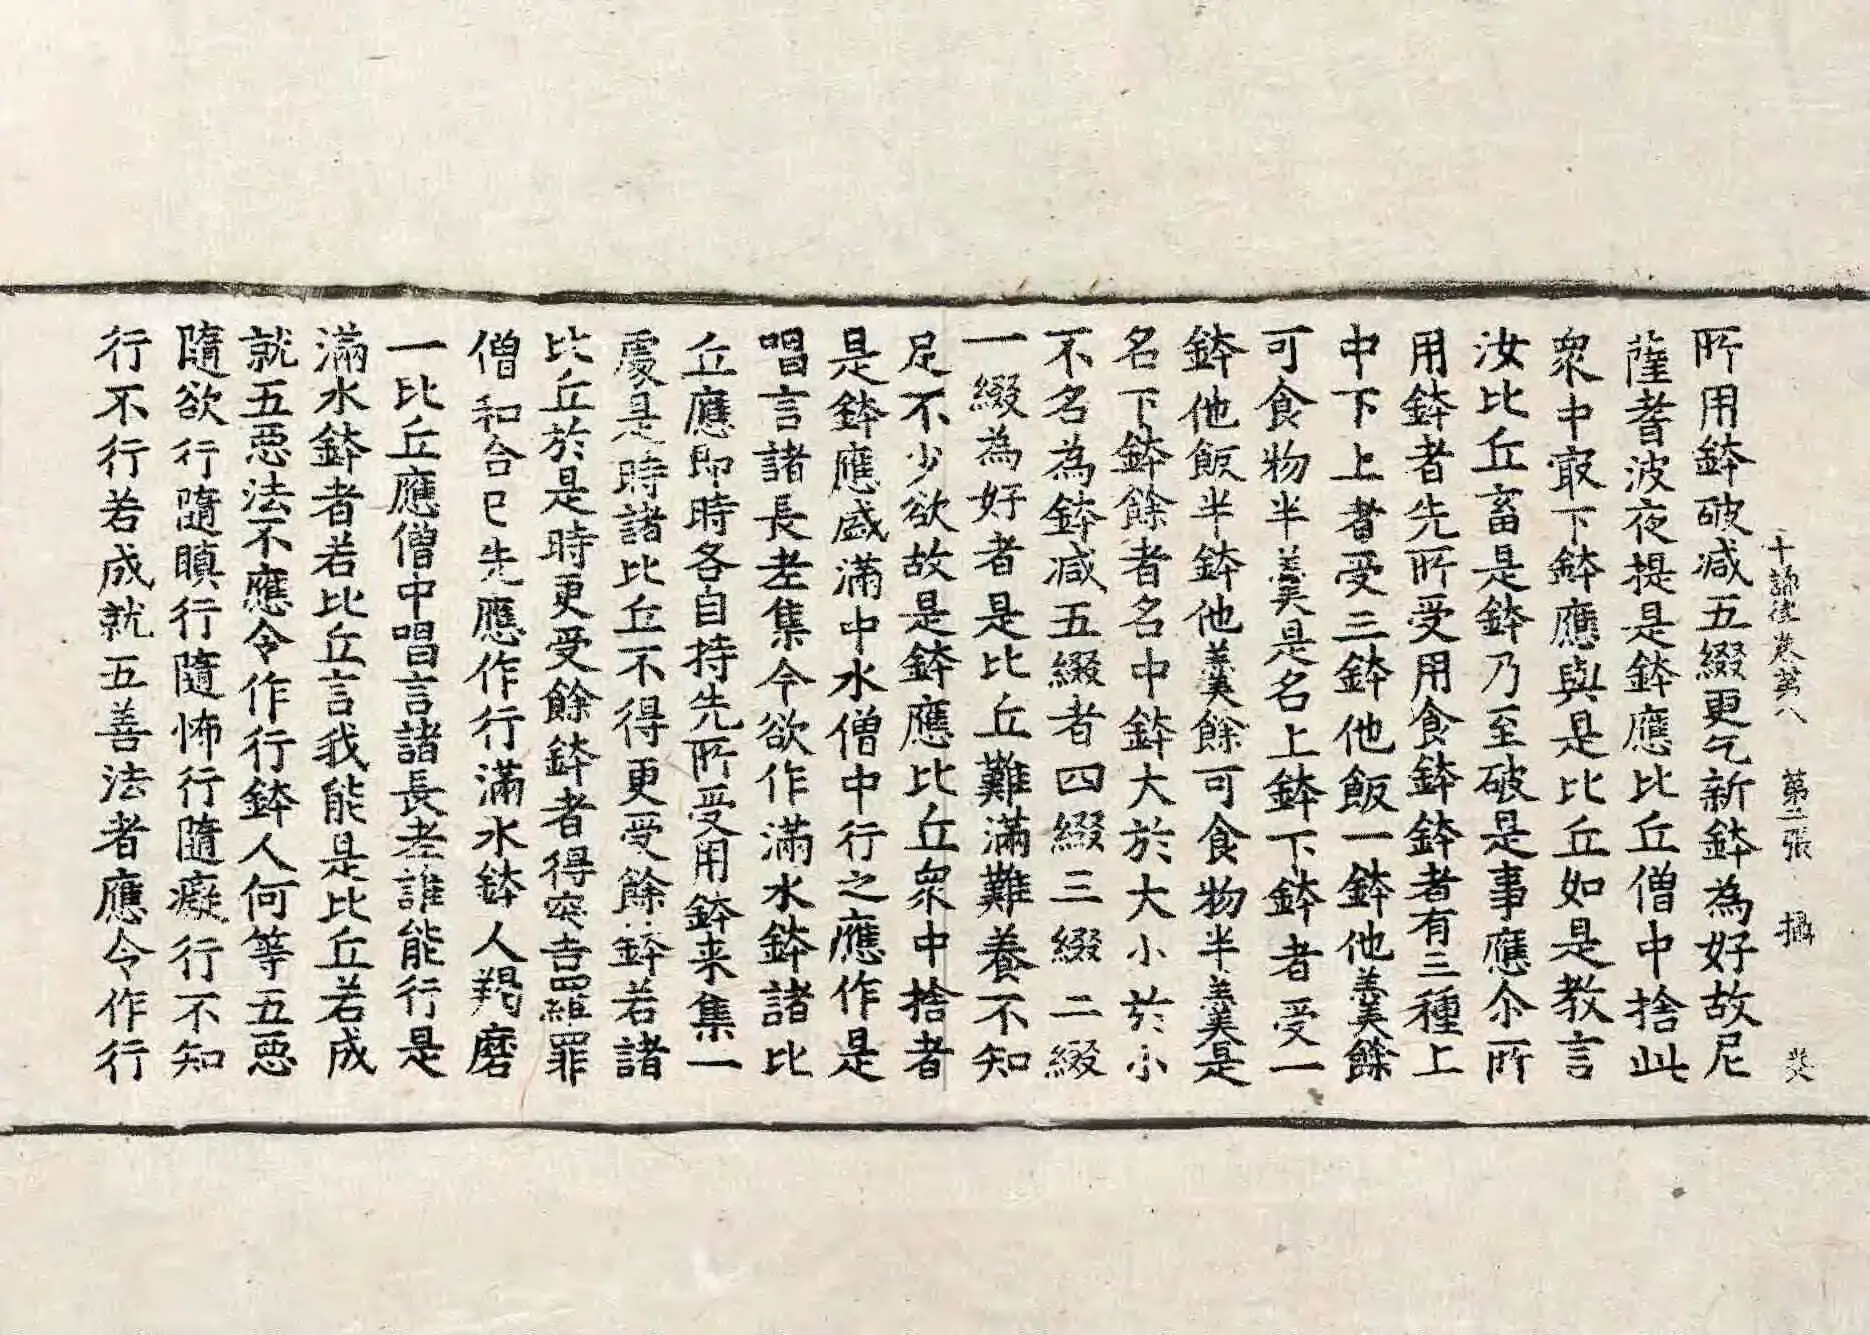 十誦律卷第八 第二張 攝
所用鉢破减五綴更乞新鉢為好故尼
薩耆波夜提是鉢應比丘僧中捨此
衆中㝡下鉢應與是比丘如是教言
汝比丘畜是鉢乃至破是事應尒所
用鉢者先所受用食鉢鉢者有三種上
中下上者受三鉢他飯一鉢他羹餘
可食物半羹是名上鉢下鉢者受一
鉢他飯半鉢他羹餘可食物半羹是
名下鉢餘者名中鉢大於大小於小
不名為鉢减五綴者四綴三綴二綴
一綴為好者是比丘難滿難養不知
足不少欲故是鉢應比丘衆中捨者
是鉢應盛滿中水僧中行之應作是
唱言諸長老集今欲作滿水鉢諸比
丘應即時各自持先所受用鉢来集一
處是時諸比丘不得更受餘鉢若諸
比丘於是時更受餘鉢者得突吉羅罪
僧和合已先應作行滿水鉢人羯磨
一比丘應僧中唱言諸長老誰能行是
滿水鉢者若比丘言我能是比丘若成
就五惡法不應令作行鉢人何等五惡
隨欲行隨瞋行隨怖行隨癡行不知
行不行若成就五善法者應令作行